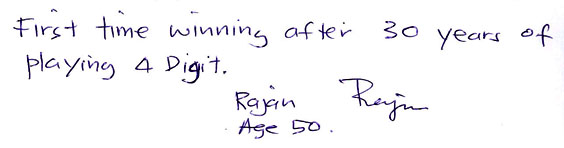 First time winning after 30 years of
playing 4 Digit.
Rajan Rajn
Age 50.